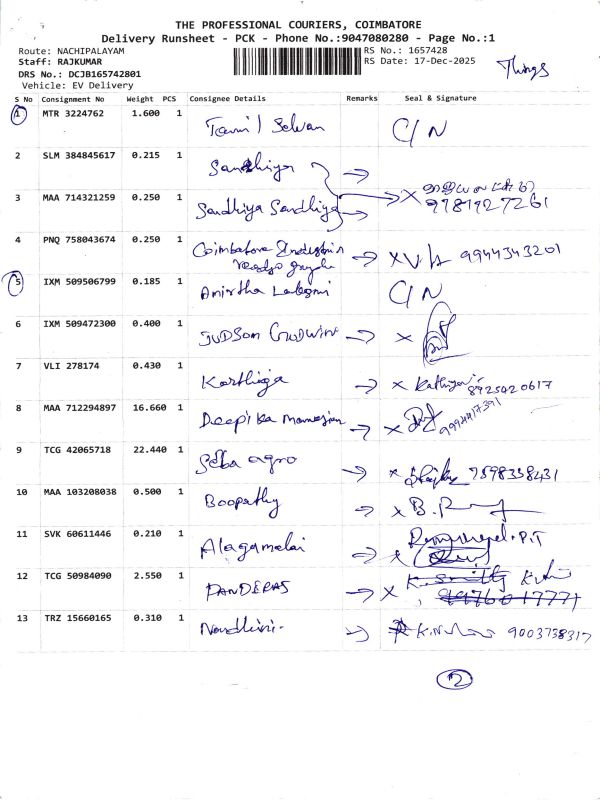 THE PROFESSIONAL COURIERS, COIMBATORE
Delivery Runsheet - PCK - Phone No.:9047080280 - Page No.:1
Route: NACHIPALAYAM RS No.: 1657428
Staff: RAJKUMAR RS Date: 17-Dec-2025
Things
DRS No.: DCJB165742801
Vehicle: EV Delivery
S No Consignment No Weight PCS Consignee Details Remarks Seal & Signature
1 MTR 3224762 1.600 1 Tamil Selvan C/N
2 SLM 384845617 0.215 1 Sandhiya
3 MAA 714321259 0.250 1 Sandhiya Sandhiya x 9787927261
4 PNQ 758043674 0.250 1 Coimbatore x 9944343201
5 IXM 509506799 0.185 1 Anirtha C/N
6 IXM 509472300 0.400 1 JUDSON GOODWIN x
7 VLI 278174 0.430 1 Karthiga x 8925920617
8 MAA 712294897 16.660 1 Deepika x
9 TCG 42065718 22.440 1 Seba agro x 9598338431
10 MAA 103208038 0.500 1 Boopathy x B.
11 SVK 60611446 0.210 1 Alagamalai x P.T
12 TCG 50984090 2.550 1 PANDERAS x
13 TRZ 15660165 0.310 1 Nandhini K.N 9003738317
2